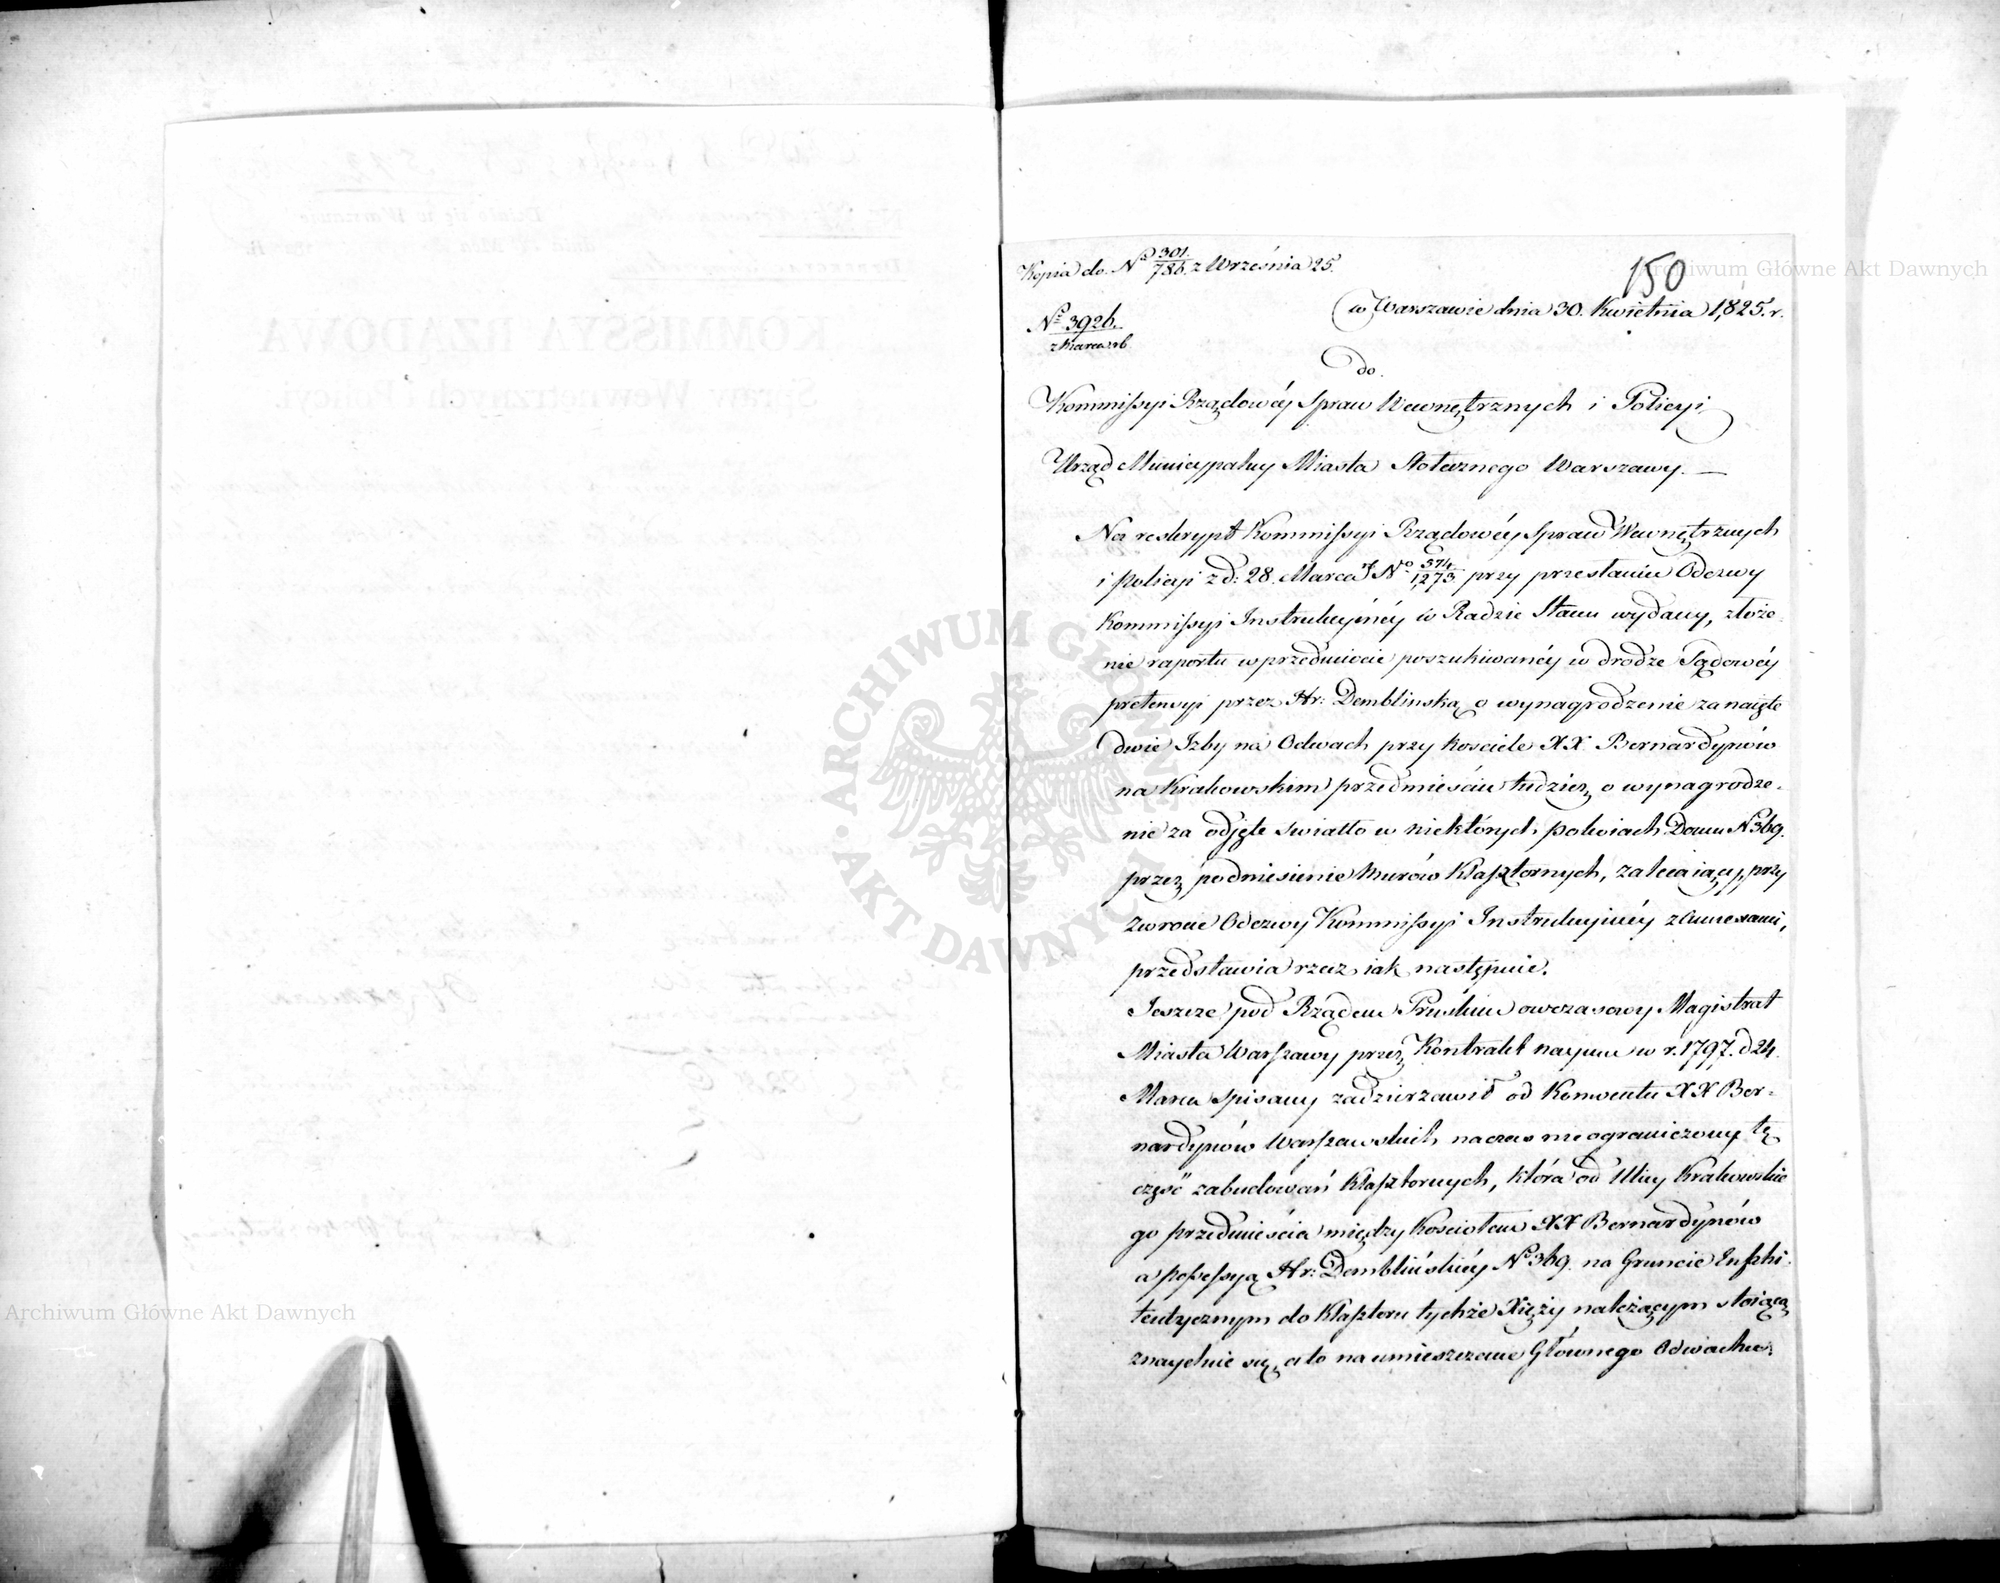 Kopia do. Nº 301/786. z Września 25.
150
w Warszawie dnia 30. Kwietnia 1,825. r.
Nº 3926.
do.
Kommissyi Rządowéy Spraw Wewnętrznych i Policyi
Urząd Municypalny Miasta Stołecznego Warszawy. —
Na reskrypt Kommissyi Rządowéy Spraw Wewnętrznych
i Policyi z d: 28. Marca Nº 574/1,273. przy przesłaniu Odezwy
Kommissyi Instrukcyinéy w Radzie Stanu wydany, złoże-
nie raportu w przedmiocie poszukiwanéy w drodze Sądowéy
pretensyi przez Hr: Demblinską o wynagrodzenie za naięte
dwie Izby na Odwach przy kosciele XX. Bernardynów
na Krakowskim przedmiesciu tudzież o wynagrodze-
nie za odjęte swiatło w niektórych pokoiach Domu Nº 369.
przez podniesienie Murów Klasztornych, zalecaiący, przy
zwrocie Odezwy Kommissyi Instrukcyinéy z Annexami,
przedstawia rzecz iak następuie.
Jeszcze pod Rządem Pruskim owczasowy Magistrat
Miasta Warszawy przez Kontrakt naymu w r. 1797. d 24.
Marca spisany zadzierzawił od Konwentu XX Ber-
nardynów Warszawskich na czas nieograniczony tę
częsć zabudowań Klasztornych, która od Ulicy Krakowskie
go przedmieścia między Kosciołem XX Bernardynów
a possessyą Hr: Demblińskiéy Nº 369. na Gruncie Emfiti-
teutycznym do Klasztoru tychże Xięży należącym stoiącą
znayduie się, a to na umieszczenie Głównego Odwachu.
Archiwum Główne Akt Dawnych
Archiwum Główne Akt Dawnych
ARCHIWUM GŁÓWNE AKT DAWNYCH